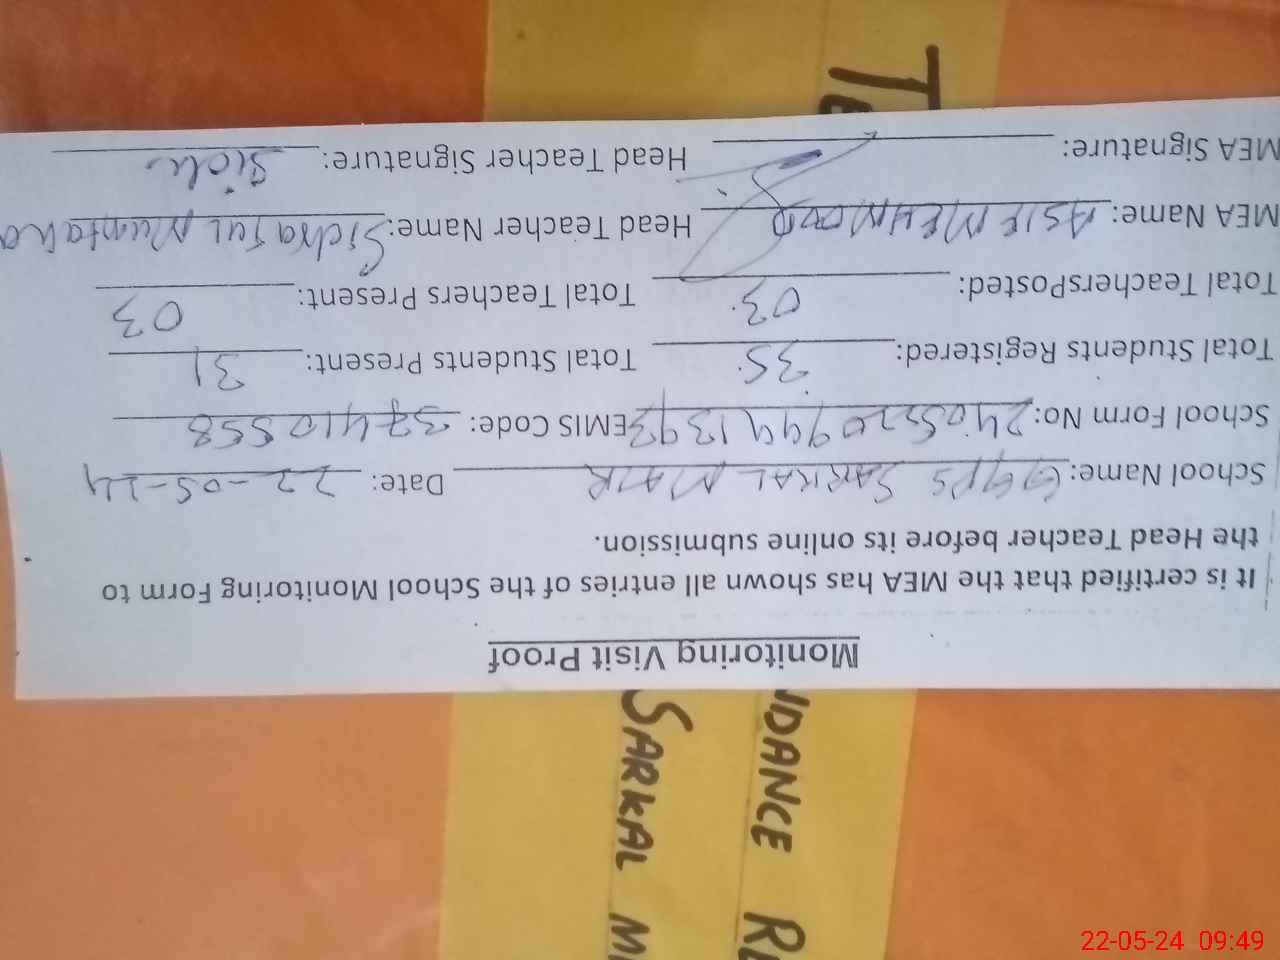 Monitoring Visit Proof
It is certified that the MEA has shown all entries of the School Monitoring Form to
the Head Teacher before its online submission.
School Name: GGPS SARKAL MAIR Date: 22-05-24
School Form No: 240522094941393 EMIS Code: 37410558
Total Students Registered: 35 Total Students Present: 31
Total TeachersPosted: 03 Total Teachers Present: 03
MEA Name: ASIF MEHMOOD Head Teacher Name: Sidra Tul Muntaha
MEA Signature: Head Teacher Signature:
TE
NDANCE RE
SARKAL M
22-05-24 09:49